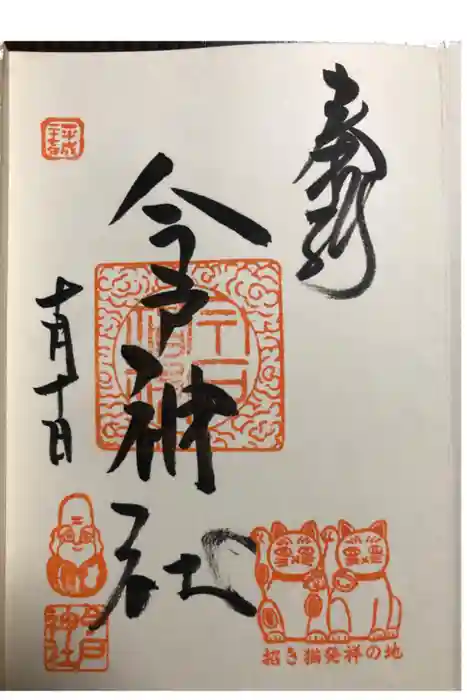 奉拝
今戸神社
平成
二十七年
十月十日
今戸
神社
招き猫発祥の地